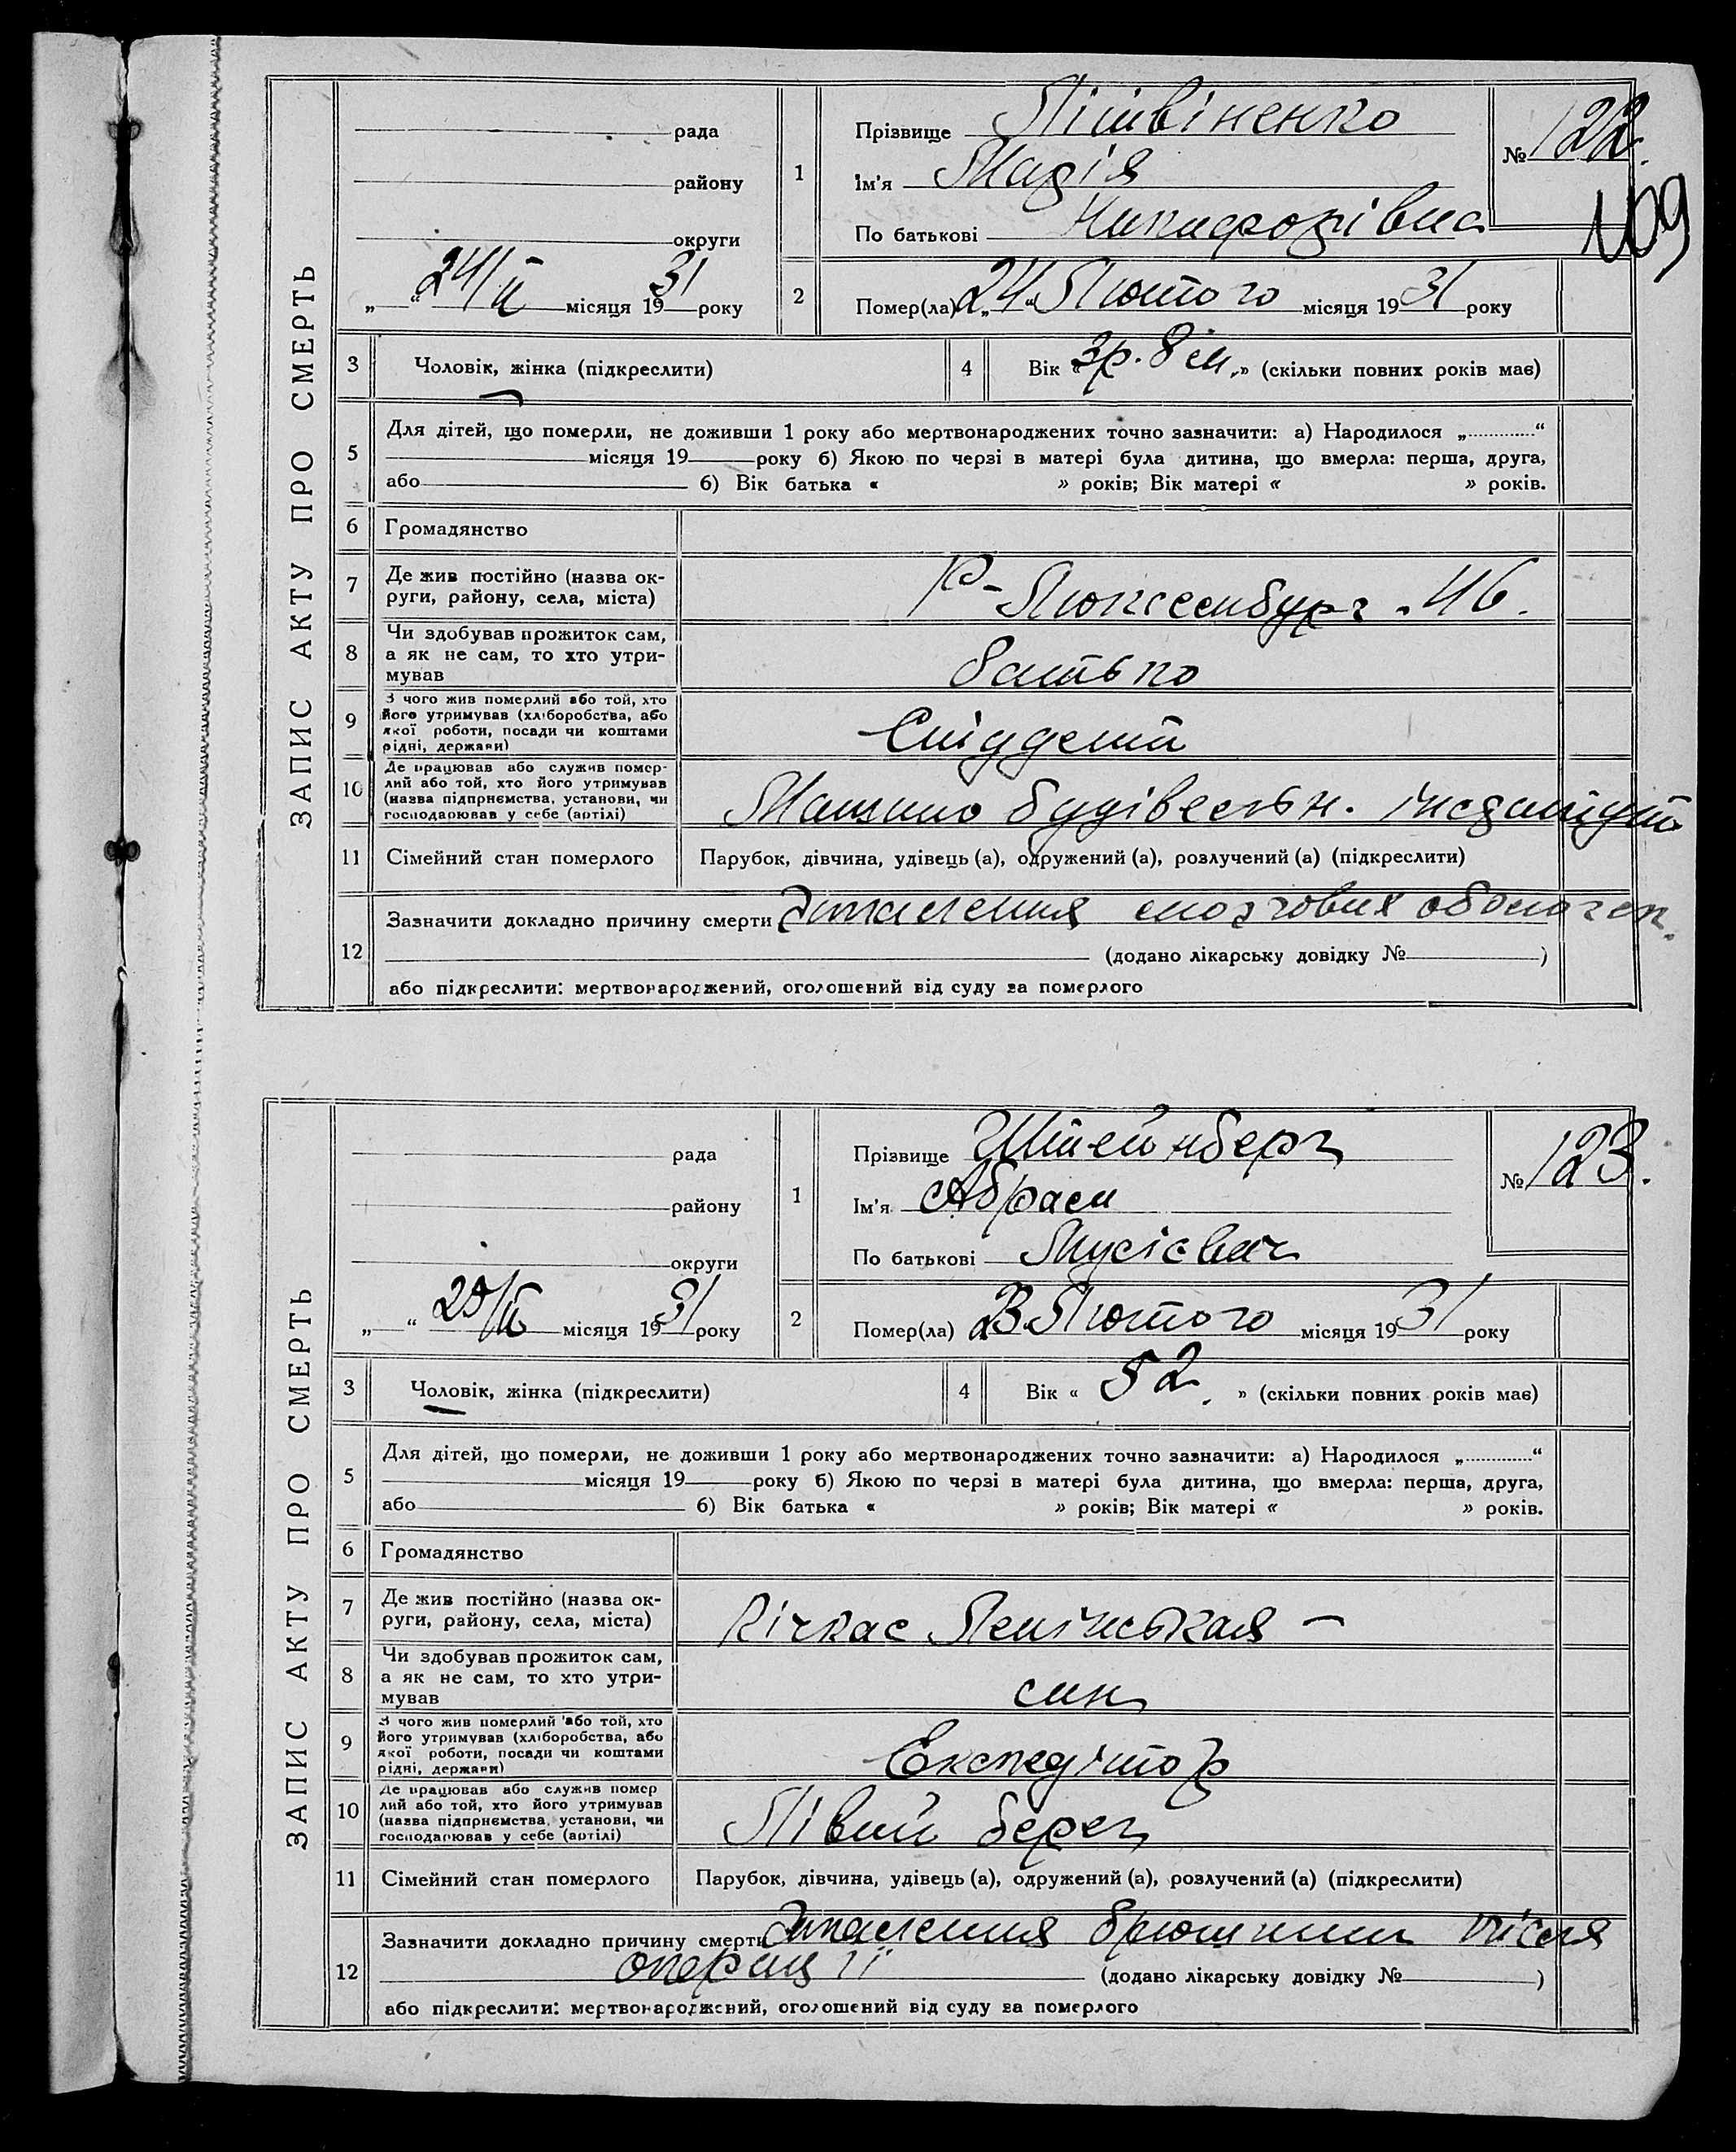 ЗАПИС АКТУ ПРО СМЕРТЬ
рада
району
округи
„ “ 24/II місяця 1931 року
1
Прізвище Літвіненко
Ім'я Марія
По батькові Никифорівна
№ 122.
109
2
Помер(ла) 24 „ “ Лютого місяця 1931 року
3
Чоловік, жінка (підкреслити)
4
Вік « 3р. 8 м. » (скільки повних років має)
5
Для дітей, що померли, не доживши 1 року або мертвонароджених точно зазначити: а) Народилося „ “
місяця 19 року б) Якою по черзі в матері була дитина, що вмерла: перша, друга,
або б) Вік батька « » років; Вік матері « » років.
6
Громадянство
7
Де жив постійно (назва ок-
руги, району, села, міста)
Р-Люксембург. 46.
8
Чи здобував прожиток сам,
а як не сам, то хто утри-
мував
батько
9
З чого жив померлий або той, хто
його утримував (хліборобства, або
якої роботи, посади чи коштами
рідні, держави)
Студент
10
Де працював або служив помер-
лий або той, хто його утримував
(назва підприємства, установи, чи
господарював у себе (артілі)
Машино будівельн. інститут
11
Сімейний стан померлого
Парубок, дівчина, удівець (а), одружений (а), розлучений (а) (підкреслити)
12
Зазначити докладно причину смерти Запалення мозгових оболочек.
(додано лікарську довідку № )
або підкреслити: мертвонароджений, оголошений від суду за померлого
ЗАПИС АКТУ ПРО СМЕРТЬ
рада
району
округи
„ “ 25/II місяця 1931 року
1
Прізвище Штейнберг
Ім'я Абрам
По батькові Мусієвич
№ 123.
2
Помер(ла) 23 Лютого місяця 1931 року
3
Чоловік, жінка (підкреслити)
4
Вік « 52. » (скільки повних років має)
5
Для дітей, що померли, не доживши 1 року або мертвонароджених точно зазначити: а) Народилося „ “
місяця 19 року б) Якою по черзі в матері була дитина, що вмерла: перша, друга,
або б) Вік батька « » років; Вік матері « » років.
6
Громадянство
7
Де жив постійно (назва ок-
руги, району, села, міста)
Кічкас Ленінськая –
8
Чи здобував прожиток сам,
а як не сам, то хто утри-
мував
син
9
З чого жив померлий або той, хто
його утримував (хліборобства, або
якої роботи, посади чи коштами
рідні, держави)
Експедітор
10
Де працював або служив помер
лий або той, хто його утримував
(назва підприємства, установи, чи
господарював у себе (артілі)
Лівий берег
11
Сімейний стан померлого
Парубок, дівчина, удівець (а), одружений (а), розлучений (а) (підкреслити)
12
Зазначити докладно причину смерти Запалення брюшини після
операції
(додано лікарську довідку № )
або підкреслити: мертвонароджений, оголошений від суду за померлого